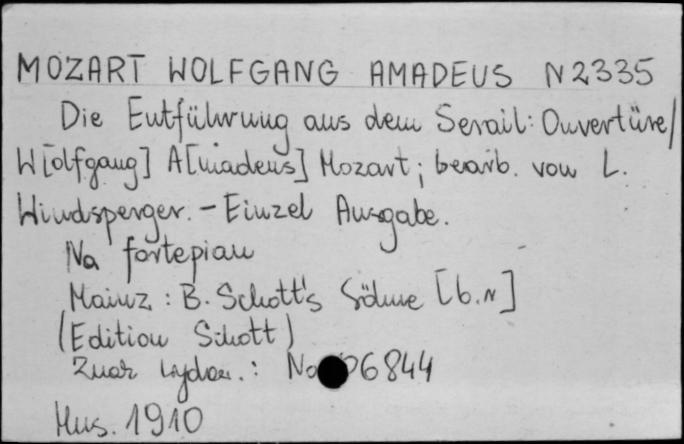 MOZART WOLFGANG AMADEUS N2335
Die Entführung aus dem Serail: Ouvertüre/
W[olfgang] A[madeus] Mozart; bearb. von L.
Windsperger. - Einzel Ausgabe.
Na fortepian
Mainz: B. Schott's Söhne [b.r]
(Edition Schott)
Znak wydaw.: No 06844
Mus. 1910